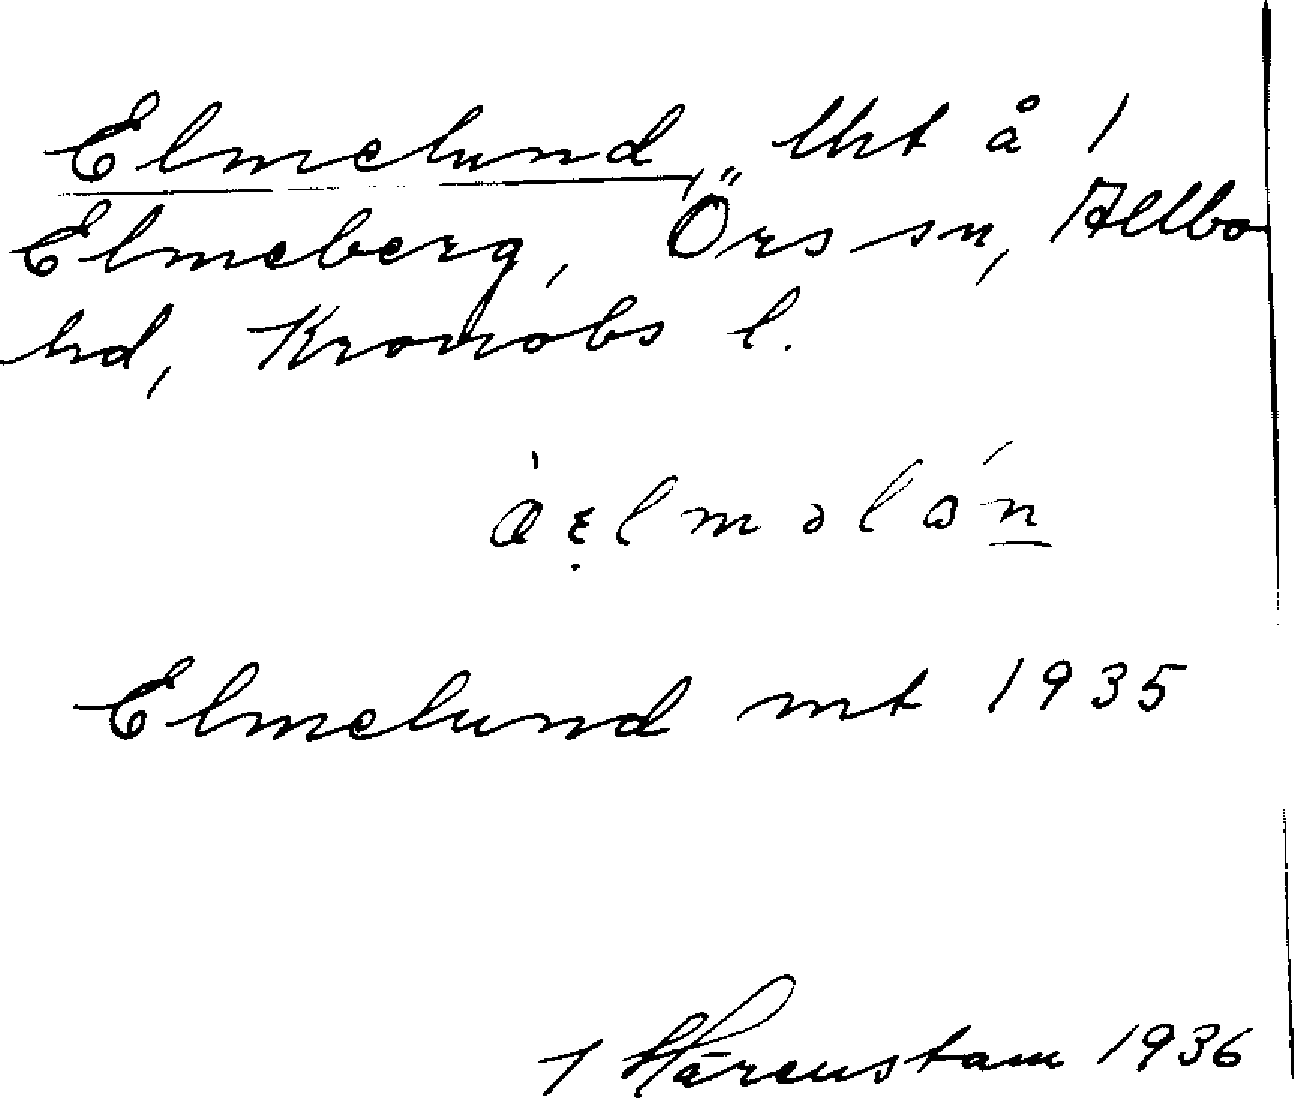 Elmelund, lht å 1
Elmeberg, Örs sn, Allbo
hd, Kronobs l.
Elmelund mt 1935
Härenstam 1936